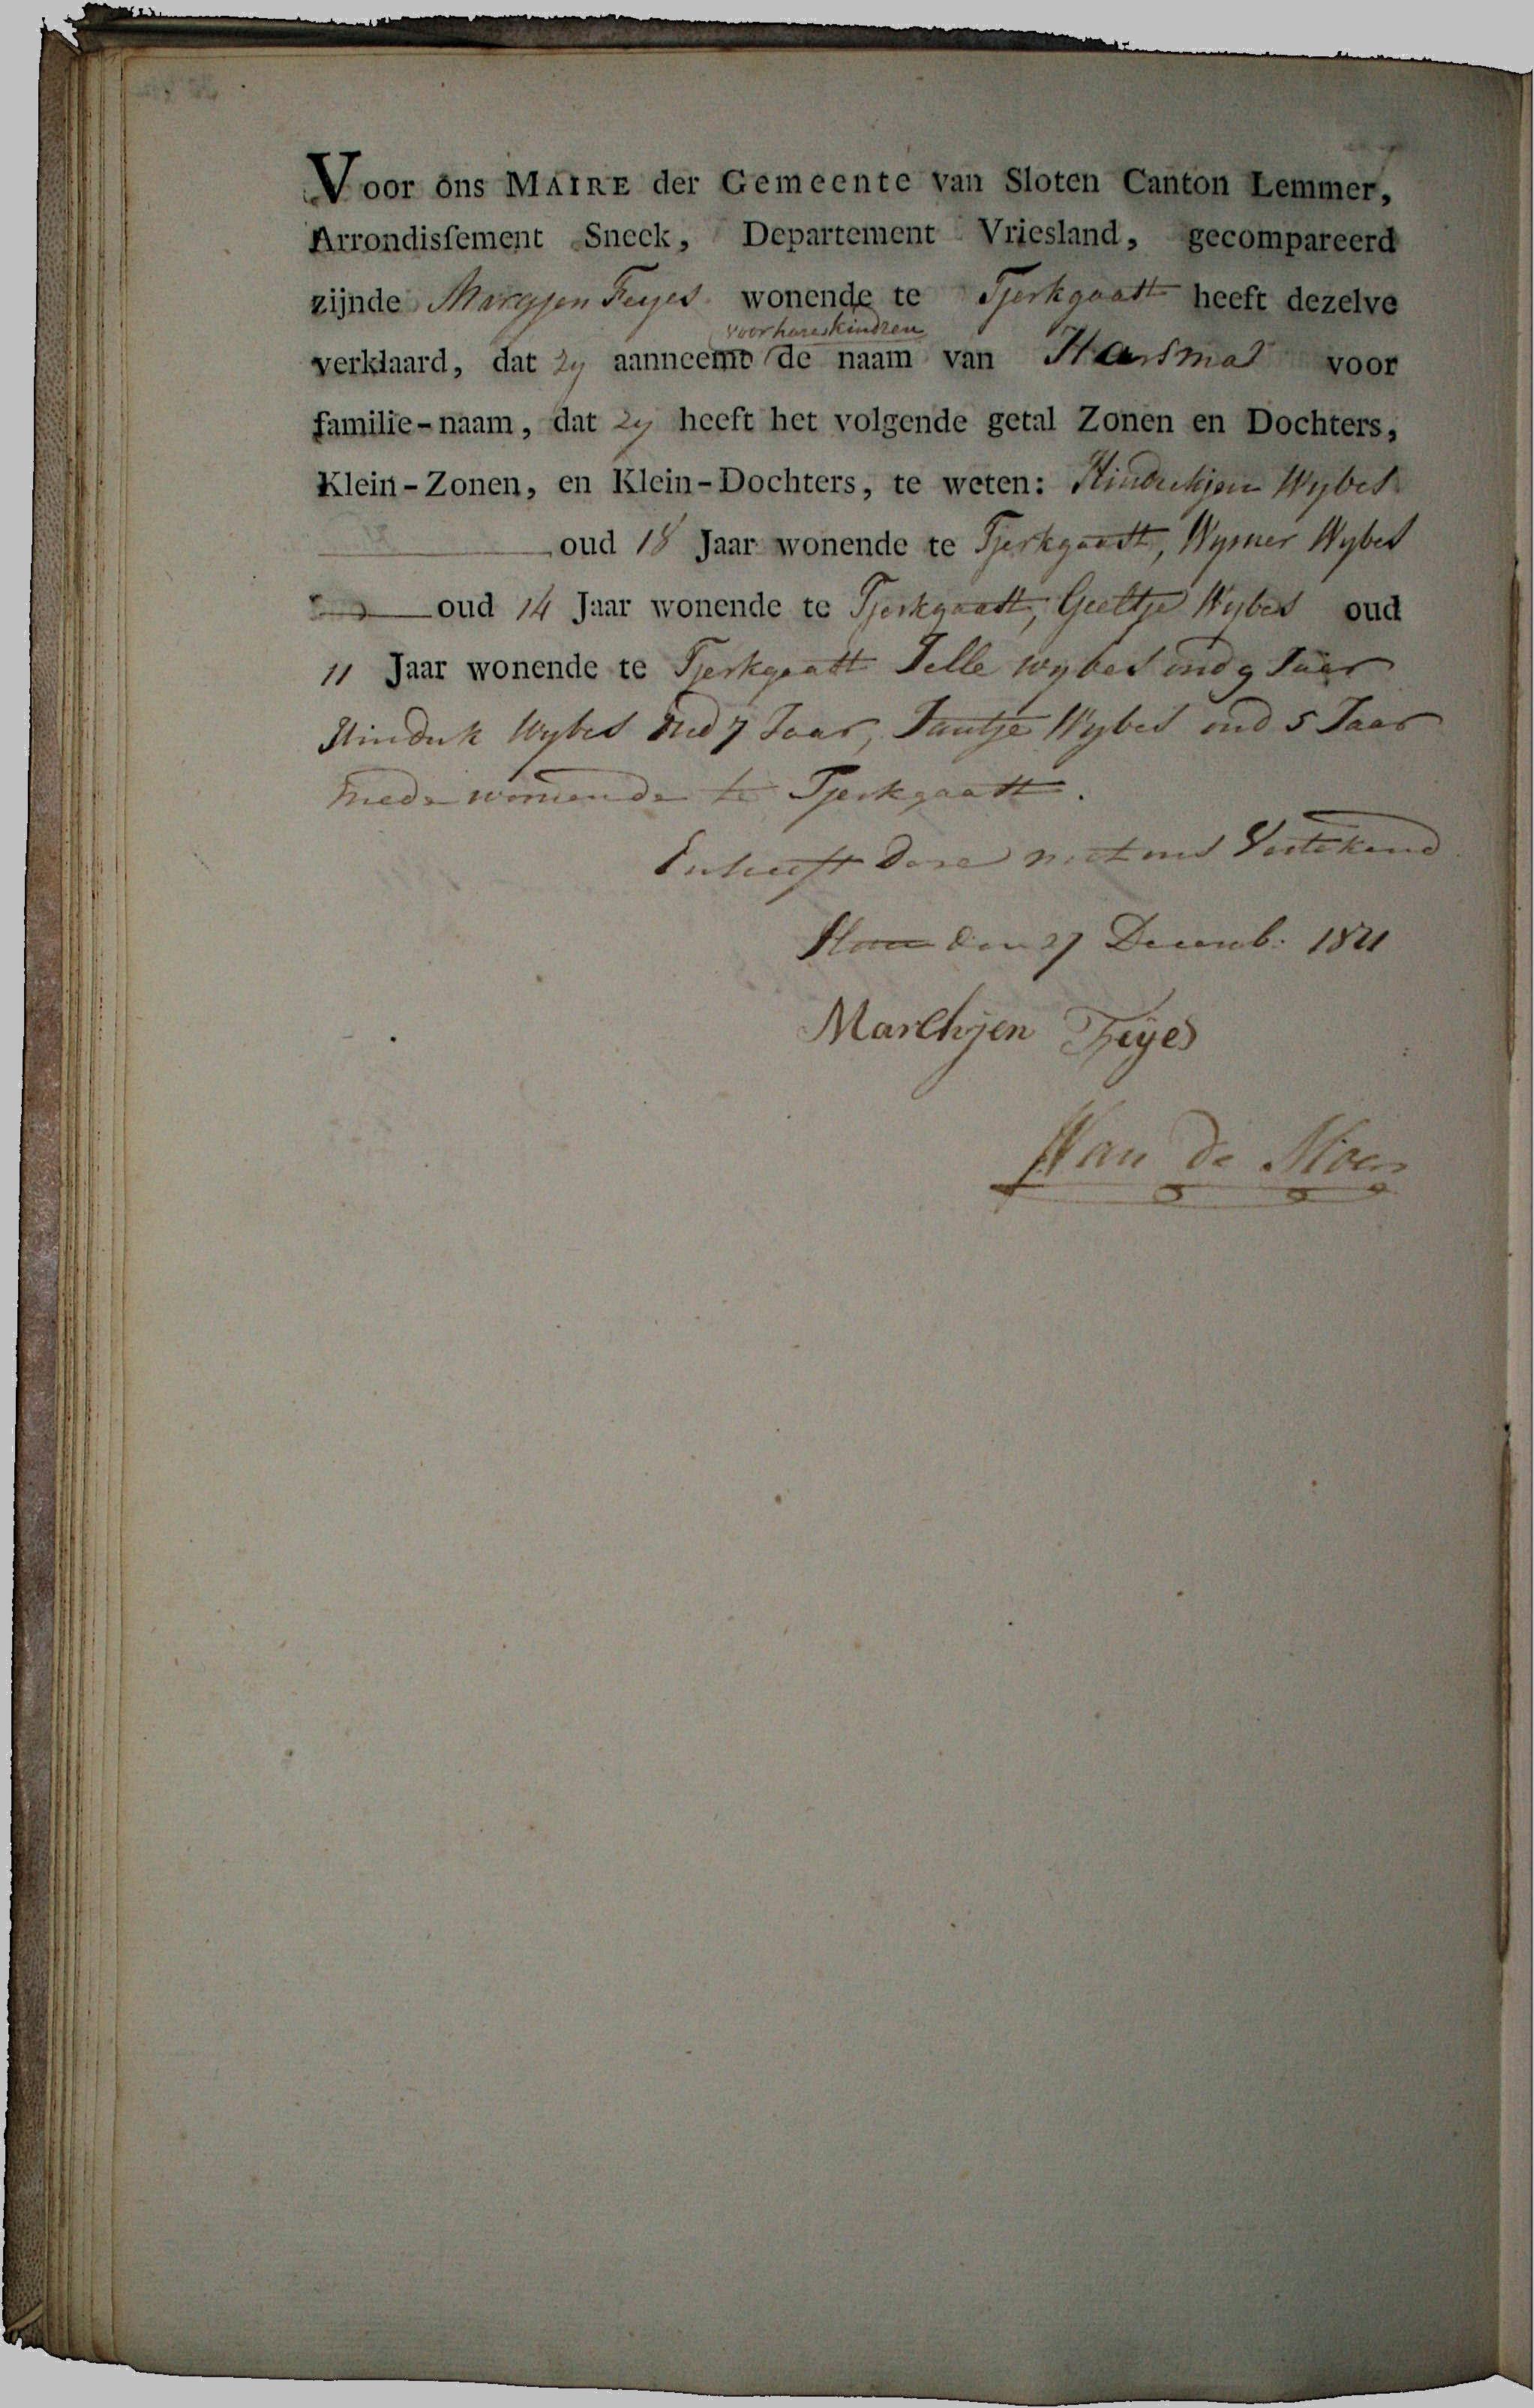 Voor ons MAIRE der Gemeente van Sloten Canton Lemmer,
Arrondissement Sneek, Departement Vriesland, gecompareerd
zijnde Margjen Feyes wonende te Tjerkgaast heeft dezelve
voor hares kindren
verklaard, dat zy aanneemt de naam van voor
familie-naam, dat zy heeft het volgende getal Zonen en Dochters,
Klein-Zonen, en Klein-Dochters, te weten: Hindrikjen Wybes
oud 18 Jaar wonende te Tjerkgaast, Wymer Wybes
oud 14 Jaar wonende te Tjerkgaast, Geeltje Wybes oud
11 Jaar wonende te Tjerkgaast Jelle Wybes oud 9 Jaar
Hindrik Wybes oud 7 Jaar, Jantje Wybes oud 5 Jaar
mede wonende te Tjerkgaast.
En heeft deze met ons Vertekend
den 27 Decemb. 1811
Marchjen Feÿes
Van de